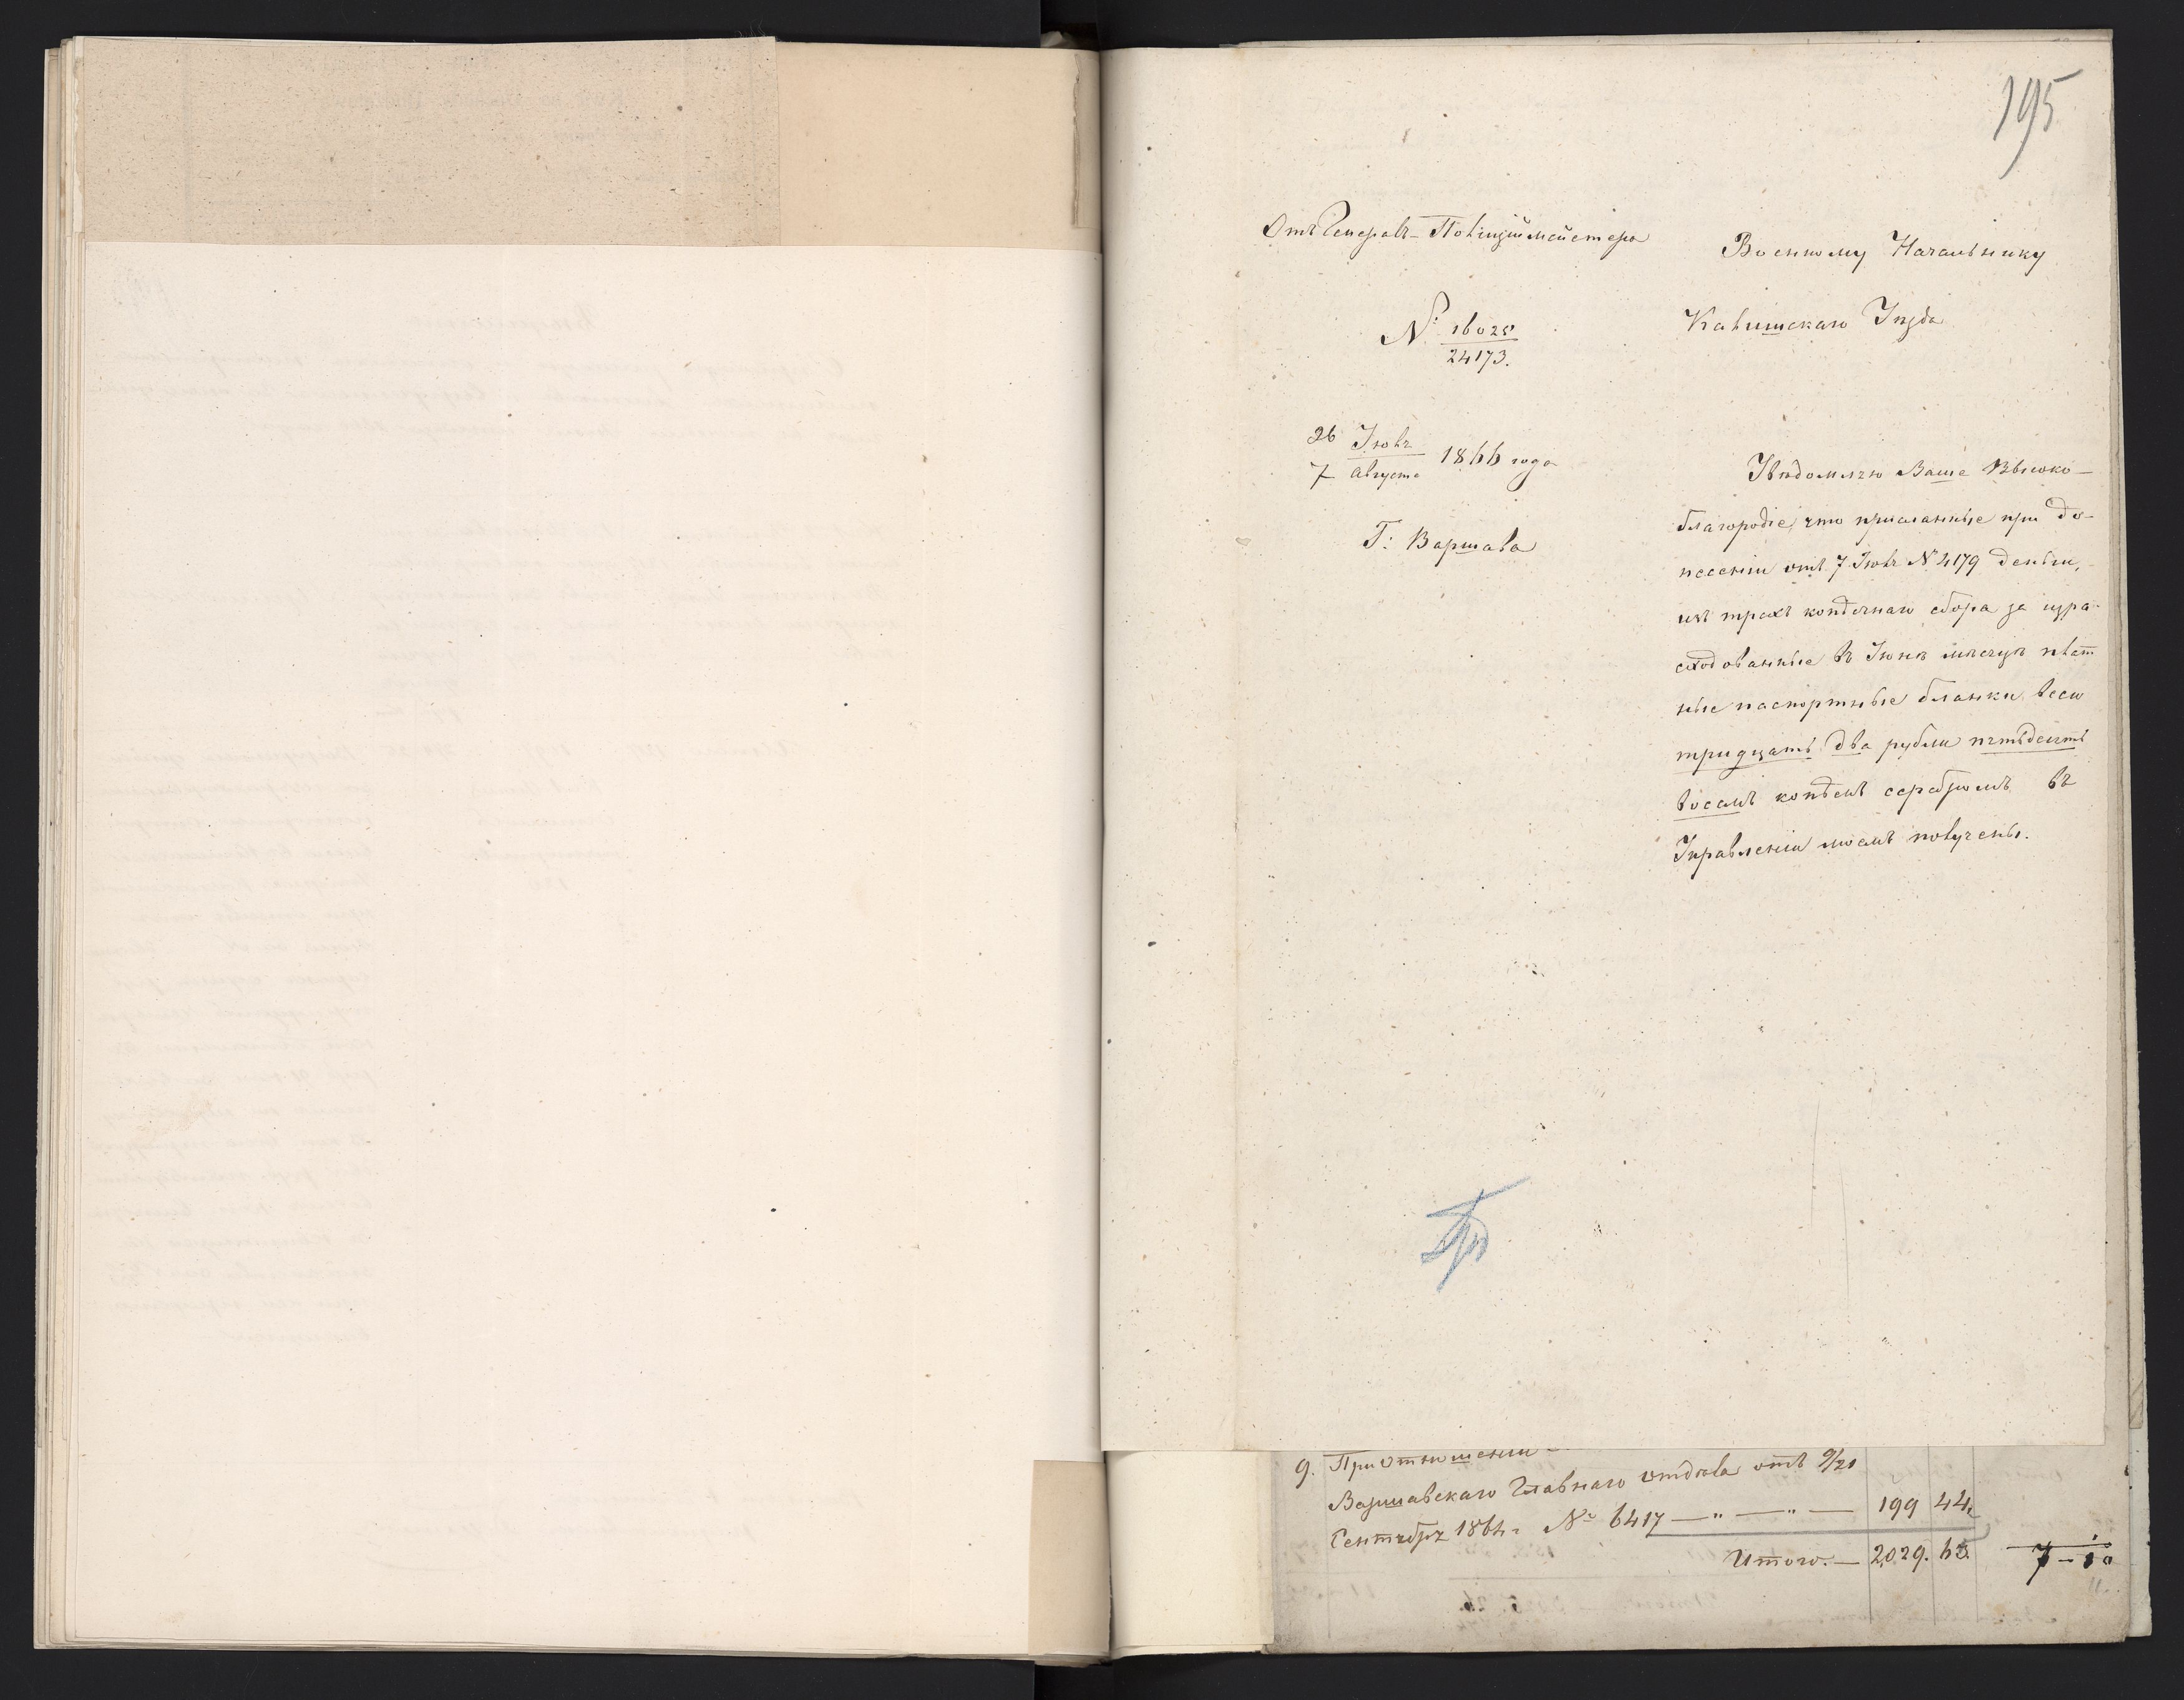 195
Отъ Генералъ-Полицiймейстера
№: 16025
24173.
26 Iюля
7 Августа 1866 года
Г: Варшава
Военному Начальнику
Калишскаго Уѣзда
Увѣдомляю Ваше Высоко-
благородiе, что присланные при до-
несенiи отъ 7 Iюля № 4179 деньги,
изъ трехъ копѣечнаго сбора за изра-
сходованные въ Iюнѣ мѣсяцѣ плат
ные паспортные бланки, всего
тридцать два рубли пятьдесятъ
восемь копѣекъ серебромъ въ
Управленiи моемъ получены.
9. При отношенiи
Варшавскаго Главнаго отдѣла отъ 9/21
Сентября 1864 г № 6417 — „ — „ — 199 44
Итого. — 2029. 63.
7 - 10